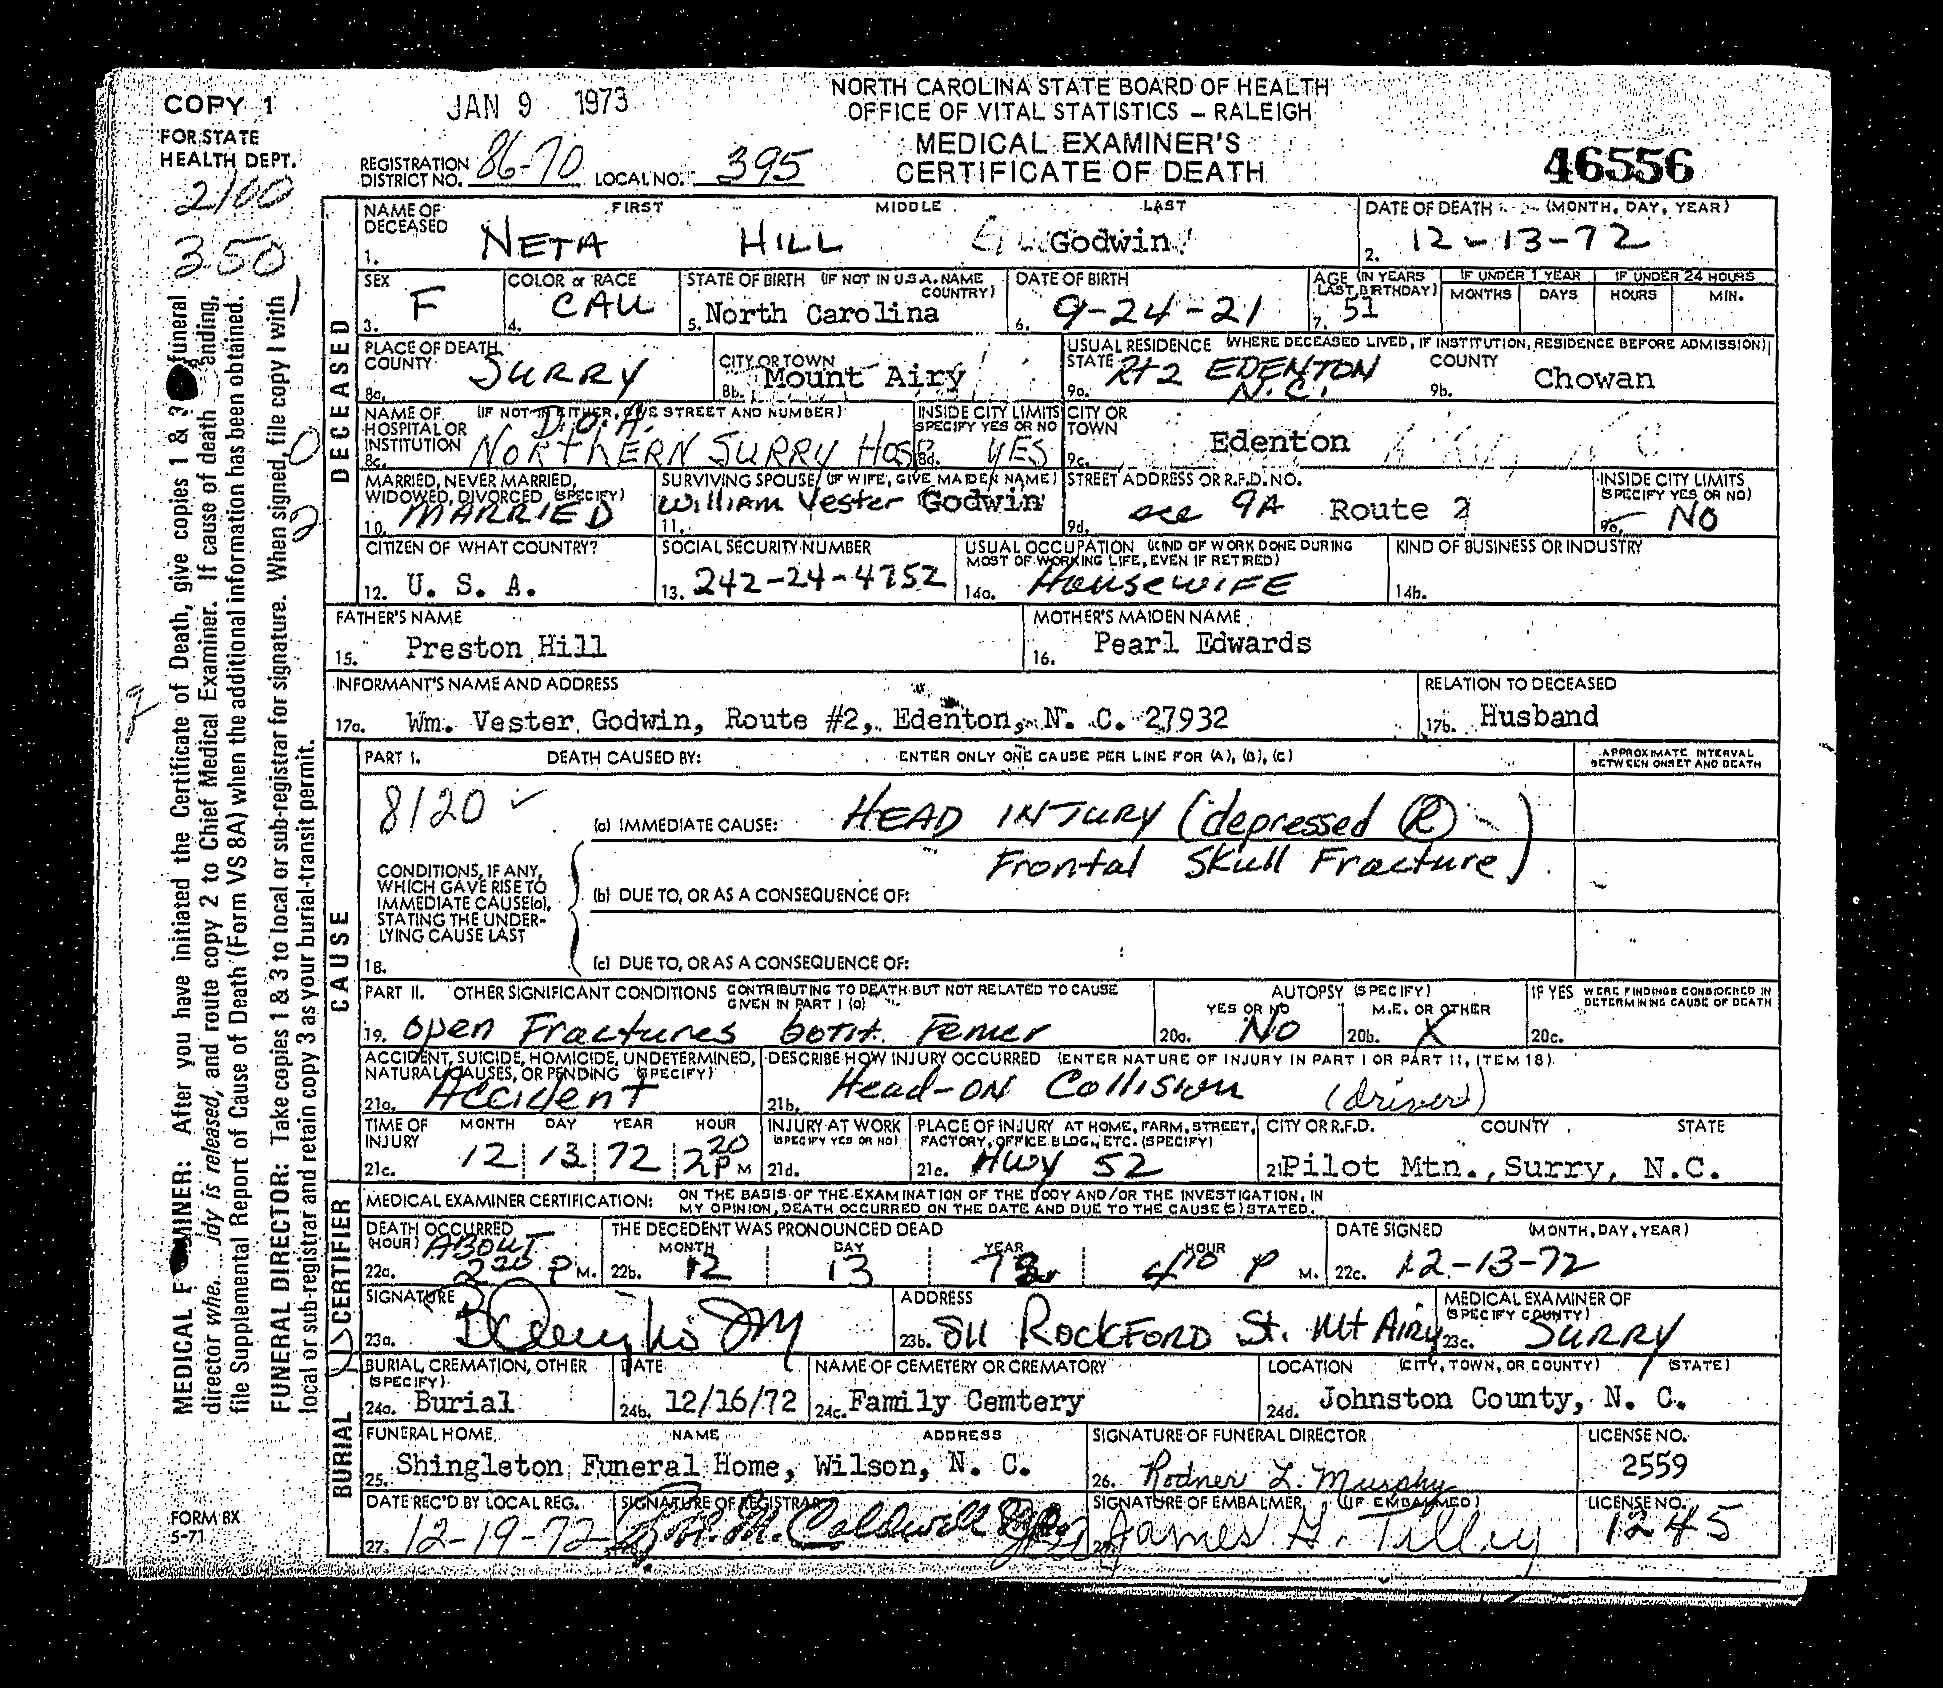 COPY 1
FOR STATE
HEALTH DEPT.
JAN 9 1973
NORTH CAROLINA STATE BOARD OF HEALTH
OFFICE OF VITAL STATISTICS — RALEIGH
MEDICAL EXAMINER'S
CERTIFICATE OF DEATH
REGISTRATION DISTRICT NO. 86-70 LOCAL NO. 395
46556
2100
350
NAME OF DECEASED FIRST MIDDLE LAST
1. NETA HILL Godwin
DATE OF DEATH (MONTH, DAY, YEAR)
2. 12-13-72
SEX
3. F
COLOR or RACE
4. CAU
STATE OF BIRTH (IF NOT IN U.S.A. NAME COUNTRY)
5. North Carolina
DATE OF BIRTH
6. 9-24-21
AGE (IN YEARS LAST BIRTHDAY)
7. 51
IF UNDER 1 YEAR MONTHS DAYS
IF UNDER 24 HOURS HOURS MIN.
DECEASED
PLACE OF DEATH COUNTY
8a. SURRY
CITY OR TOWN
8b. Mount Airy
USUAL RESIDENCE (WHERE DECEASED LIVED, IF INSTITUTION, RESIDENCE BEFORE ADMISSION)
STATE
9a. Rt 2 EDENTON N.C.
COUNTY
9b. Chowan
NAME OF HOSPITAL OR INSTITUTION (IF NOT IN EITHER, GIVE STREET AND NUMBER)
8c. D.O.A. NORTHERN SURRY HOSP
INSIDE CITY LIMITS SPECIFY YES OR NO
8d. YES
CITY OR TOWN
9c. Edenton
MARRIED, NEVER MARRIED, WIDOWED, DIVORCED (SPECIFY)
10. MARRIED
SURVIVING SPOUSE (IF WIFE, GIVE MAIDEN NAME)
11. William Vester Godwin
STREET ADDRESS OR R.F.D. NO.
9d. see 9A Route 2
INSIDE CITY LIMITS (SPECIFY YES OR NO)
9e. NO
CITIZEN OF WHAT COUNTRY?
12. U. S. A.
SOCIAL SECURITY NUMBER
13. 242-24-4752
USUAL OCCUPATION (KIND OF WORK DONE DURING MOST OF WORKING LIFE, EVEN IF RETIRED)
14a. HouseWIFE
KIND OF BUSINESS OR INDUSTRY
14b.
FATHER'S NAME
15. Preston Hill
MOTHER'S MAIDEN NAME
16. Pearl Edwards
INFORMANT'S NAME AND ADDRESS
17a. Wm. Vester Godwin, Route #2, Edenton, N. C. 27932
RELATION TO DECEASED
17b. Husband
CAUSE
PART I. DEATH CAUSED BY: ENTER ONLY ONE CAUSE PER LINE FOR (A), (B), (C)
APPROXIMATE INTERVAL BETWEEN ONSET AND DEATH
8120 ✓
(a) IMMEDIATE CAUSE: HEAD INJURY (depressed Ⓡ
Frontal Skull Fracture)
CONDITIONS, IF ANY, WHICH GAVE RISE TO IMMEDIATE CAUSE (a), STATING THE UNDERLYING CAUSE LAST
(b) DUE TO, OR AS A CONSEQUENCE OF:
18.
(c) DUE TO, OR AS A CONSEQUENCE OF:
PART II. OTHER SIGNIFICANT CONDITIONS CONTRIBUTING TO DEATH BUT NOT RELATED TO CAUSE GIVEN IN PART I (a)
19. Open Fractures both Femer
AUTOPSY (SPECIFY) YES OR NO
20a. NO
M.E. OR OTHER
20b. X
IF YES WERE FINDINGS CONSIDERED IN DETERMINING CAUSE OF DEATH
20c.
ACCIDENT, SUICIDE, HOMICIDE, UNDETERMINED, NATURAL CAUSES, OR PENDING (SPECIFY)
21a. Accident
DESCRIBE HOW INJURY OCCURRED (ENTER NATURE OF INJURY IN PART I OR PART II, ITEM 18)
21b. Head-on Collision (driver)
TIME OF INJURY MONTH DAY YEAR HOUR
21c. 12 13 72 2 20 P M
INJURY AT WORK (SPECIFY YES OR NO)
21d.
PLACE OF INJURY AT HOME, FARM, STREET, FACTORY, OFFICE BLDG., ETC. (SPECIFY)
21e. HWY 52
CITY OR R.F.D. COUNTY STATE
21 Pilot Mtn., Surry, N.C.
CERTIFIER
MEDICAL EXAMINER CERTIFICATION: ON THE BASIS OF THE EXAMINATION OF THE BODY AND/OR THE INVESTIGATION, IN MY OPINION, DEATH OCCURRED ON THE DATE AND DUE TO THE CAUSE(S) STATED.
DEATH OCCURRED (HOUR)
22a. ABOUT 2 20 P M.
THE DECEDENT WAS PRONOUNCED DEAD MONTH DAY YEAR HOUR
22b. 12 13 72 4 10 P M.
DATE SIGNED (MONTH, DAY, YEAR)
22c. 12-13-72
SIGNATURE
23a.
ADDRESS
23b. 811 ROCKFORD St. Mt Airy
MEDICAL EXAMINER OF (SPECIFY COUNTY)
23c. SURRY
BURIAL
BURIAL, CREMATION, OTHER (SPECIFY)
24a. Burial
DATE
24b. 12/16/72
NAME OF CEMETERY OR CREMATORY
24c. Family Cemtery
LOCATION (CITY, TOWN, OR COUNTY) (STATE)
24d. Johnston County, N. C.
FUNERAL HOME NAME ADDRESS
25. Shingleton Funeral Home, Wilson, N. C.
SIGNATURE OF FUNERAL DIRECTOR
26. Rodner L. Murphy
LICENSE NO.
2559
DATE REC'D BY LOCAL REG.
27. 12-19-72
SIGNATURE OF REGISTRAR
M. Caldwell
SIGNATURE OF EMBALMER (IF EMBALMED)
James H. Tilley
LICENSE NO.
1245
FORM 8X
5-71
director whe. ody is released, and route copy 2 to Chief Medical Examiner. If cause of death ending,
file Supplemental Report of Cause of Death (Form VS 8A) when the additional information has been obtained.
FUNERAL DIRECTOR: Take copies 1 & 3 to local or sub-registrar for signature. When signed, file copy 1 with
local or sub-registrar and retain copy 3 as your burial-transit permit.
MEDICAL MINER: After you have initiated the Certificate of Death, give copies 1 & 3 funeral